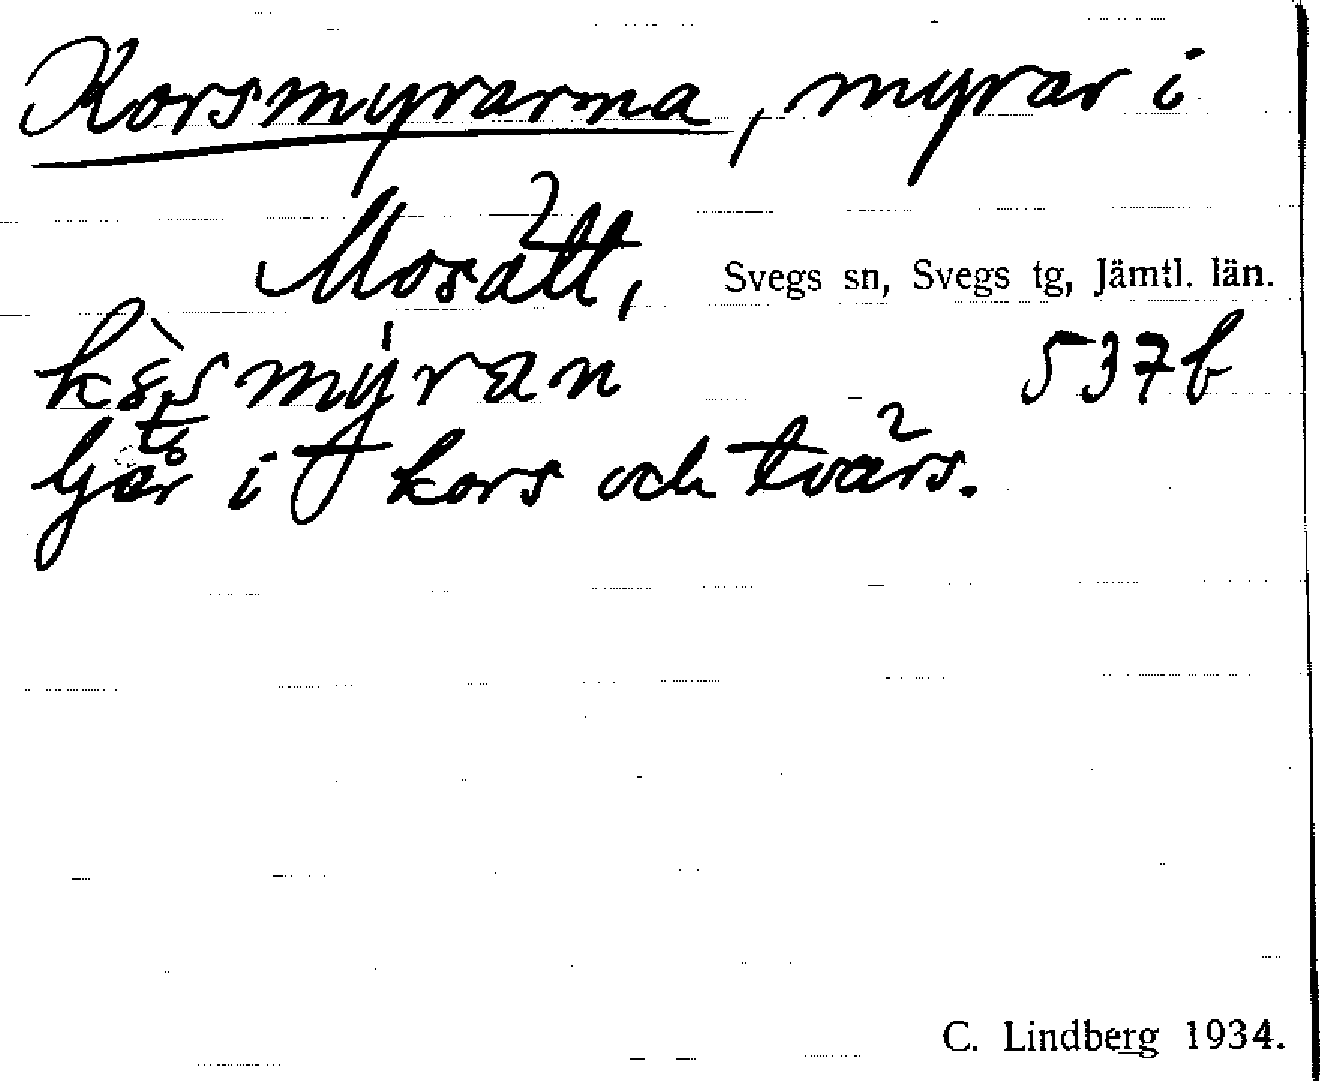 Korsmyrarna, myrar i
Mosätt, Svegs sn, Svegs tg, Jämtl. län.
537b
Går i kors och tvärs.
C. Lindberg 1934.